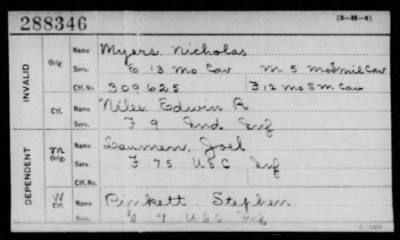 288346
(3-H-4)
INVALID
Orig
Name Myers, Nicholas
Serv. E 13 Mo Cav M 5 Mo S mil Cav
Ctf. No. 309625 F 12 Mo S.M. Cav
Ctf. Name Niles Edwin R
Serv. F 9 Ind Inf
DEPENDENT
m Orig. Name Joel
Serv. F 75 U.S.C Inf
Ctf. No.
W Ctf. Name Pinkett Stephen
Serv. 7 U.S.C Inf